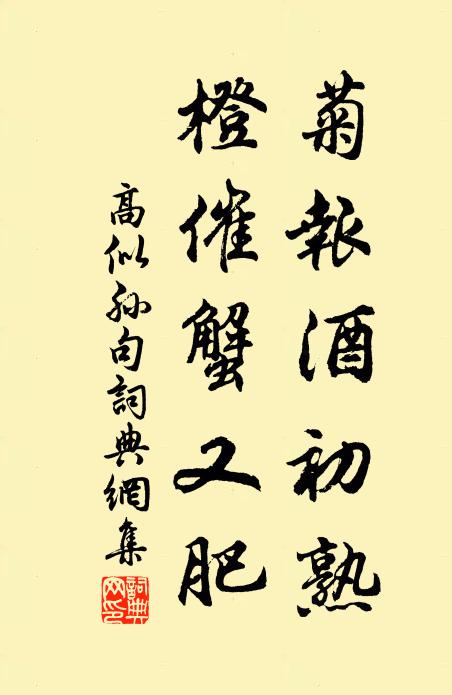 菊報酒初熟
橙催蟹又肥
高似孙句詞典網集
詞典网印